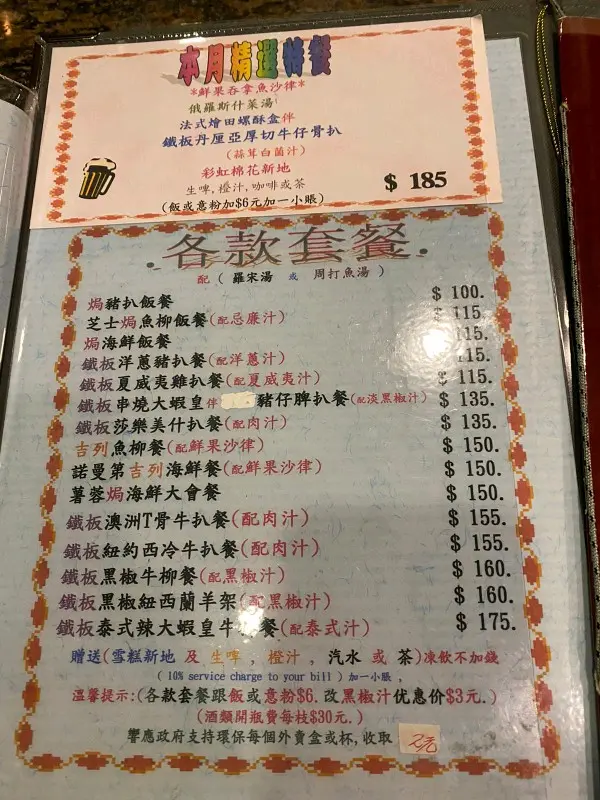 本月精選特餐
*鮮果吞拿魚沙律*
俄羅斯什菜湯
法式燴田螺酥盒伴
鐵板丹厘亞厚切牛仔骨扒
(蒜茸白菌汁)
彩虹棉花新地
生啤,橙汁,咖啡或茶
(飯或意粉加$6元加一小賬)
$ 185
各款套餐
配 ( 羅宋湯 或 周打魚湯 )
焗豬扒飯餐 $ 100.
芝士焗魚柳飯餐(配忌廉汁) $ 115.
焗海鮮飯餐 115.
鐵板洋蔥豬扒餐(配洋蔥汁) 115.
鐵板夏威夷雞扒餐(配夏威夷汁) $ 115.
鐵板串燒大蝦皇伴 豬仔脾扒餐(配淡黑椒汁) $ 135.
鐵板莎樂美什扒餐(配肉汁) $ 135.
吉列魚柳餐(配鮮果沙律) $ 150.
諾曼第吉列海鮮餐(配鮮果沙律) $ 150.
薯蓉焗海鮮大會餐 $ 150.
鐵板澳洲T骨牛扒餐(配肉汁) $ 155.
鐵板紐約西冷牛扒餐(配肉汁) $ 155.
鐵板黑椒牛柳餐(配黑椒汁) $ 160.
鐵板黑椒紐西蘭羊架(配黑椒汁) $ 160.
鐵板泰式辣大蝦皇牛 餐(配泰式汁) $ 175.
贈送(雪糕新地 及 生啤 , 橙汁 , 汽水 或 茶)凍飲不加錢
( 10% service charge to your bill ) 加一小賬 ,
溫馨提示:(各款套餐跟飯或意粉$6. 改黑椒汁优惠价$3元.)
(酒類開瓶費每枝$30元.)
響應政府支持環保每個外賣盒或杯,收取 2元